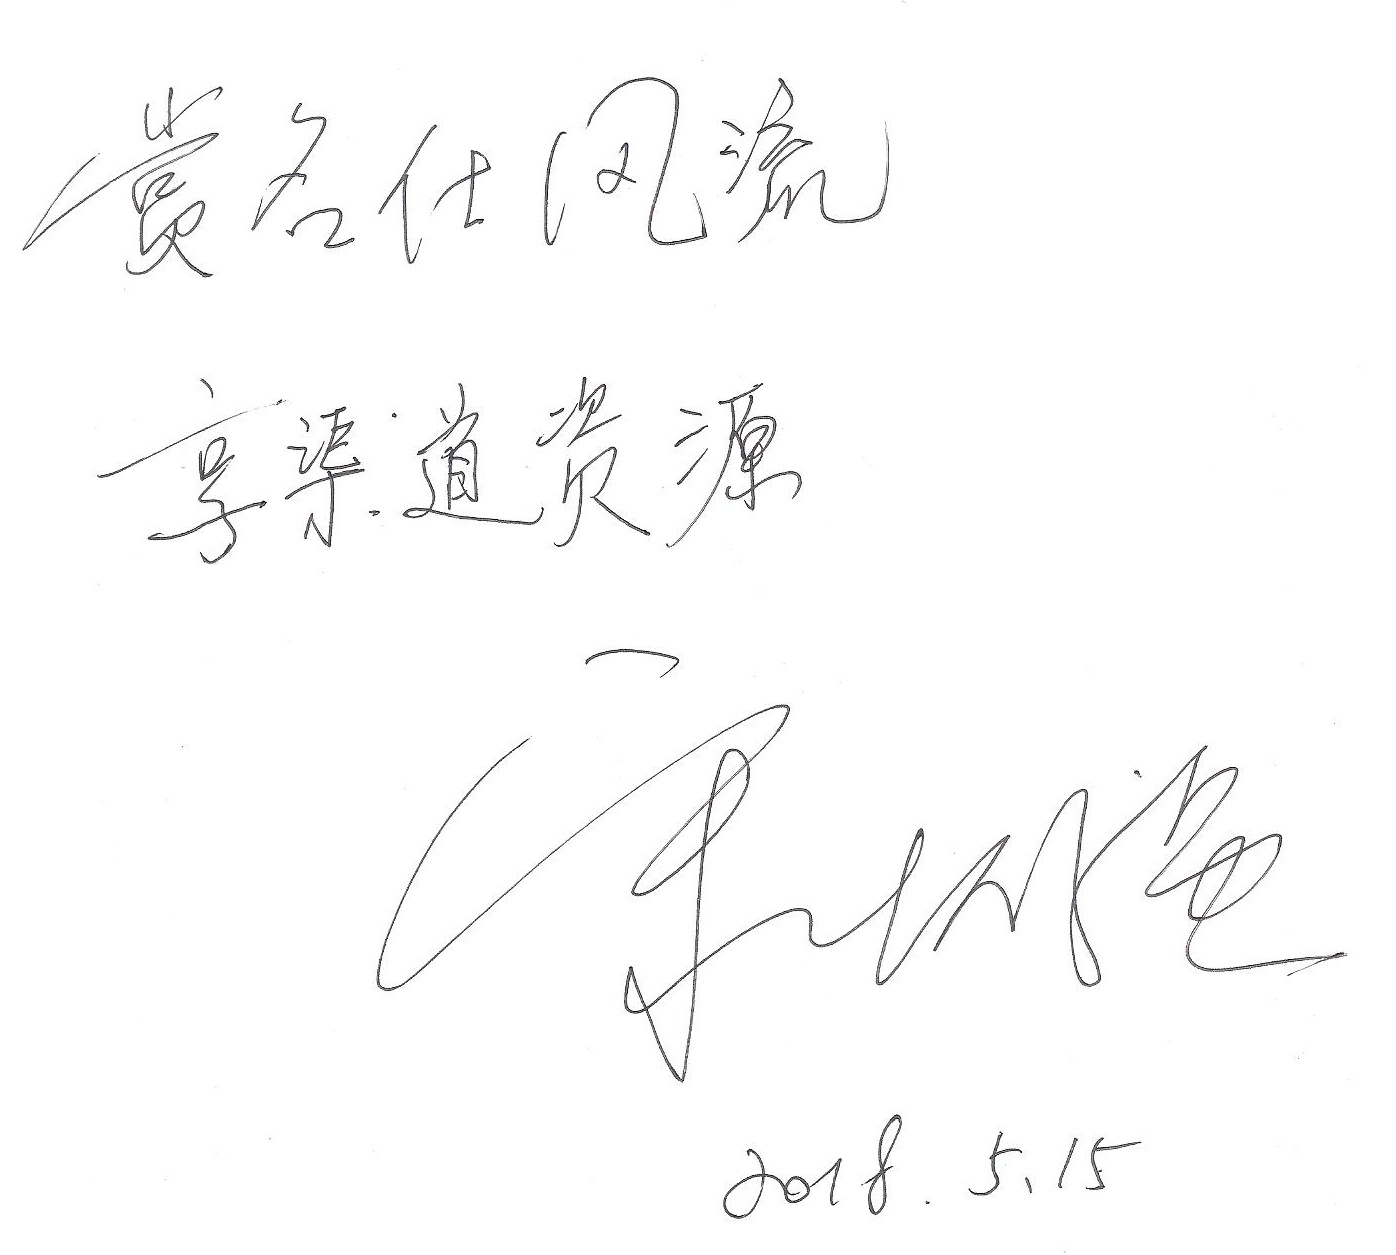 赏名仕风流
享渠道资源
2018.5.15